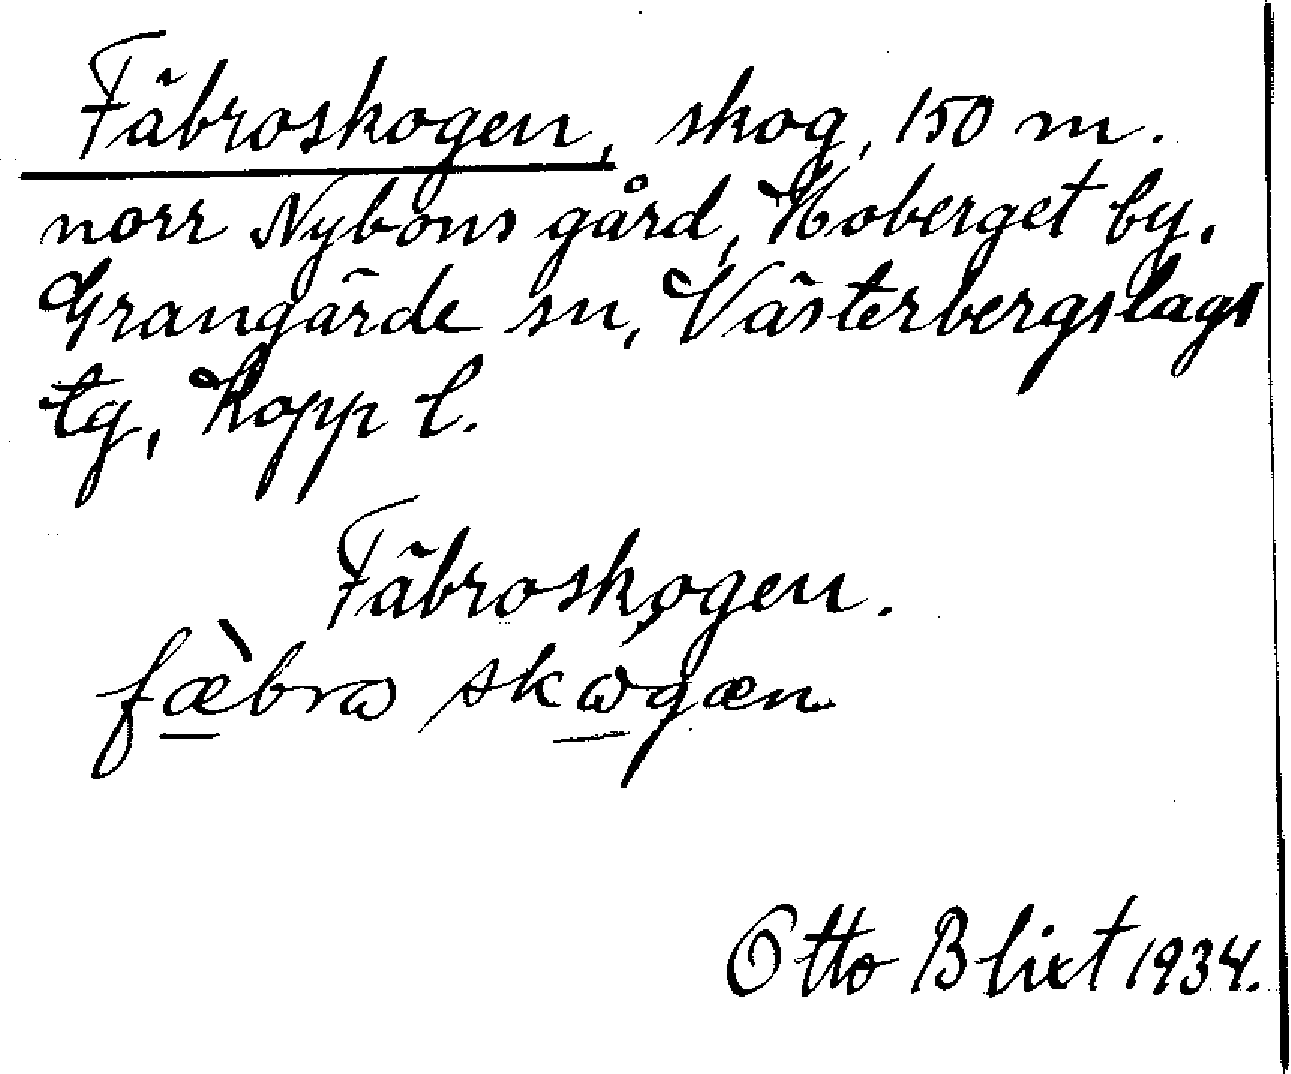 Fäbroskogen, skog, 150 m.
norr Nybons gård, Hoberget by.
Grangärde sn, Västerbergslags
tg, Kopp l.
Fäbroskogen.
fæ̀bro skωgæn
Otto Blixt 1934.